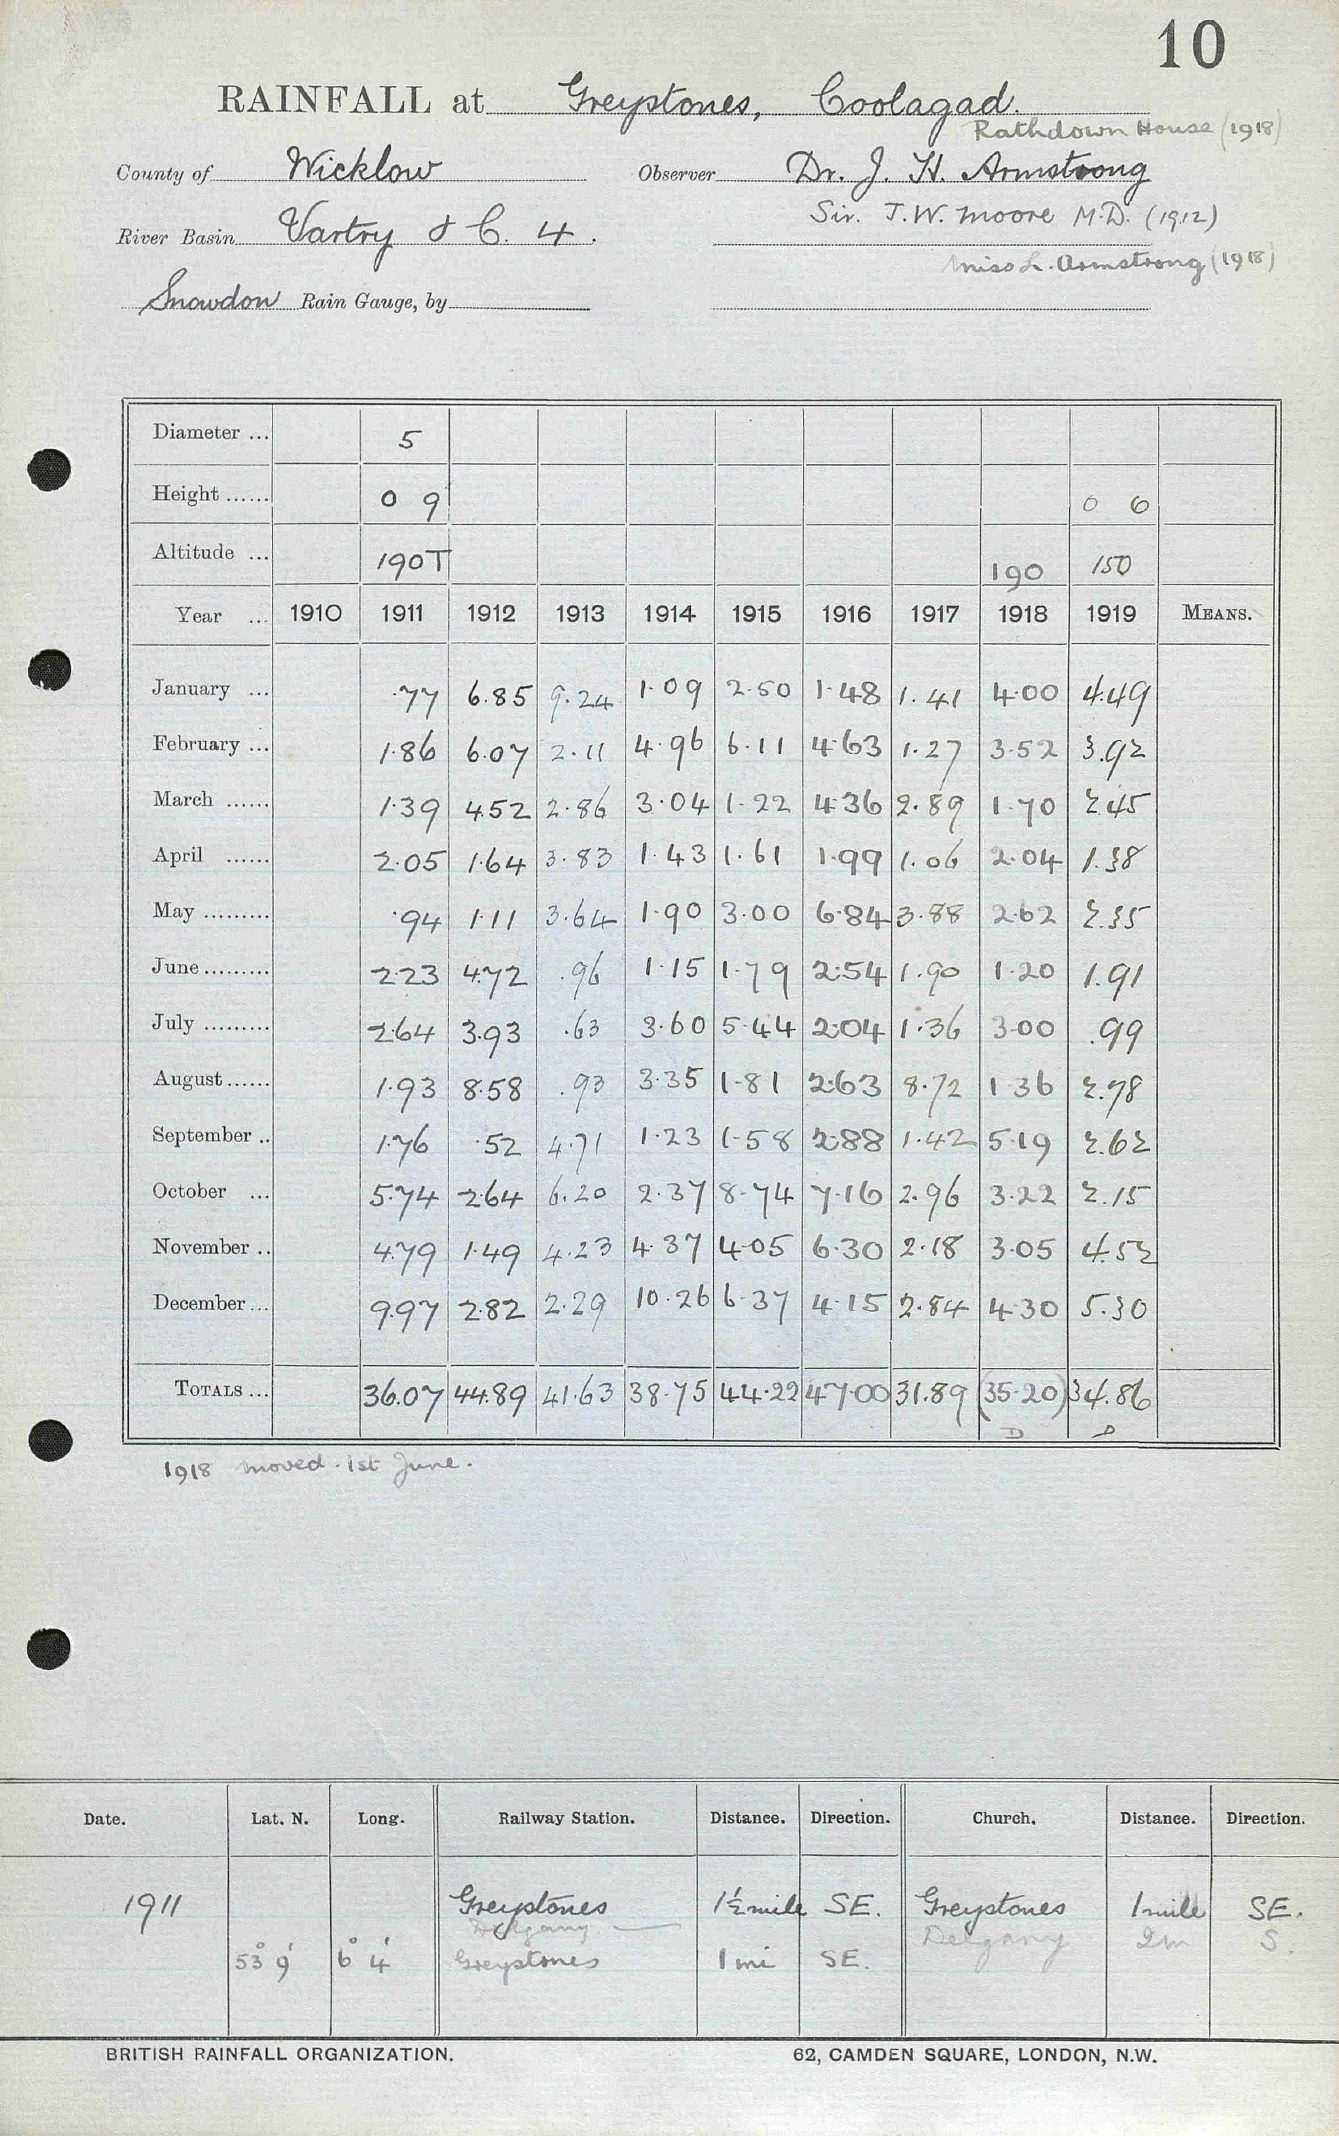 10
RAINFALL at Greystones, Coolagad.
Rathdown House (1918)
County of Wicklow Observer Dr. J. H. Armstrong
River Basin Vartry & C. 4. Sir. J. W. Moore M.D. (1912)
Miss L. Armstrong (1918)
Snowdon Rain Gauge, by
Diameter ... 5
Height ...... 0 9 0 6
Altitude ... 190T 190 150
Year ... 1910 1911 1912 1913 1914 1915 1916 1917 1918 1919 MEANS.
January ... .77 6.85 9.24 1.09 2.50 1.48 1.41 4.00 4.49
February ... 1.86 6.07 2.11 4.96 6.11 4.63 1.27 3.52 3.92
March ...... 1.39 4.52 2.86 3.04 1.22 4.36 2.89 1.70 2.45
April ...... 2.05 1.64 3.83 1.43 1.61 1.99 1.06 2.04 1.38
May ......... .94 1.11 3.64 1.90 3.00 6.84 3.88 2.62 2.35
June ......... 2.23 4.72 .96 1.15 1.79 2.54 1.90 1.20 1.91
July ......... 2.64 3.93 .63 3.60 5.44 2.04 1.36 3.00 .99
August ...... 1.93 8.58 .93 3.35 1.81 2.63 8.72 1.36 2.78
September .. 1.76 .52 4.71 1.23 1.58 2.88 1.42 5.19 2.62
October ... 5.74 2.64 6.20 2.37 8.74 7.16 2.96 3.22 2.15
November .. 4.79 1.49 4.23 4.37 4.05 6.30 2.18 3.05 4.52
December ... 9.97 2.82 2.29 10.26 6.37 4.15 2.84 4.30 5.30
TOTALS ... 36.07 44.89 41.63 38.75 44.22 47.00 31.89 (35.20) 34.86
D D
1918 moved 1st June.
Date. Lat. N. Long. Railway Station. Distance. Direction. Church. Distance. Direction.
1911 Greystones 1½ mile SE. Greystones 1 mile SE.
Delgany Delgany 2m S.
53° 9' 6° 4' Greystones 1 mi SE.
BRITISH RAINFALL ORGANIZATION. 62, CAMDEN SQUARE, LONDON, N.W.